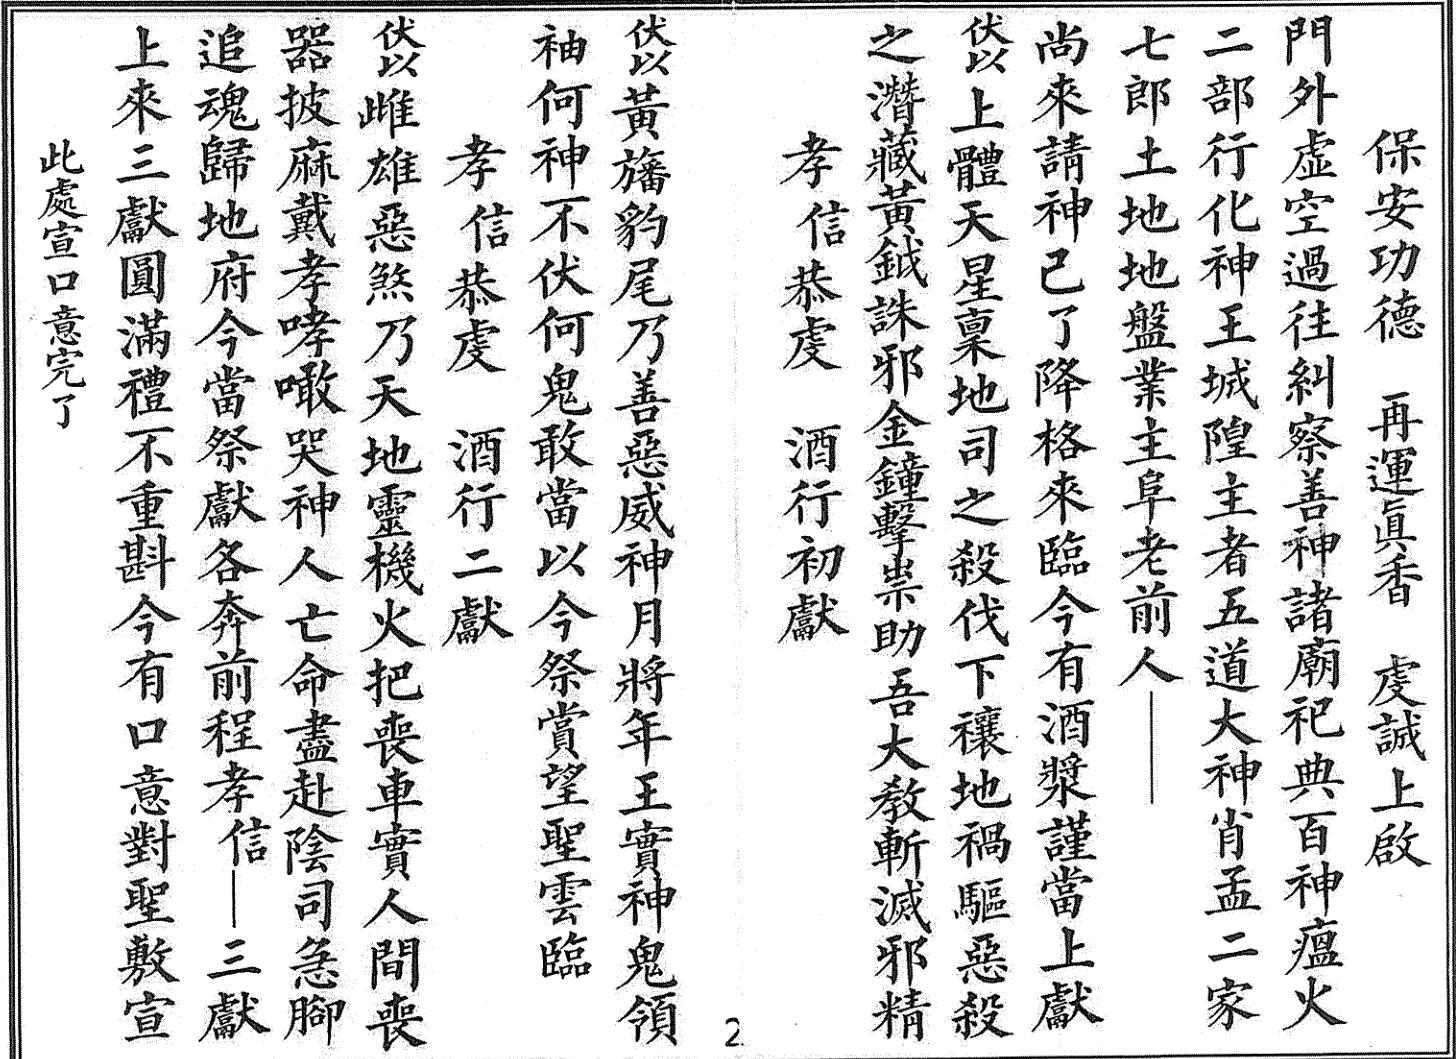 保安功德　再運眞香　虔誠上啟
門外虛空過往糾察善神諸廟祀典百神瘟火
二部行化神王城隍主者五道大神肖孟二家
七郎土地地盤業主阜老前人——
尚來請神已了降格來臨今有酒漿謹當上獻
伏以上體天星稟地司之殺伐下禳地禍驅惡殺
之潛藏黃鉞誅邪金鐘擊祟助吾大教斬滅邪精
孝信恭虔　酒行初獻
伏以黃旛豹尾乃善惡威神月將年王實神鬼領
袖何神不伏何鬼敢當以今祭賞望聖雲臨
孝信恭虔　酒行二獻
伏以雌雄惡煞乃天地靈機火把喪車實人間喪
器披麻戴孝哮噉哭神人亡命盡赴陰司急腳
追魂歸地府今當祭獻各奔前程孝信——三獻
上來三獻圓滿禮不重斟今有口意對聖敷宣
此處宣口意完了
2